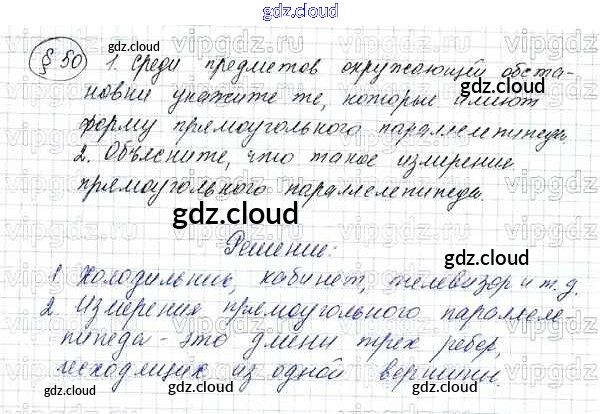 gdz.cloud
§ 50
gdz.cloud
1. Среди предметов окружающей обста-
новки укажите те, которые имеют
форму прямоугольного параллелепипеда.
2. Объясните, что такое измерение
прямоугольного параллелепипеда.
gdz.cloud
gdz.cloud
gdz.cloud
Решение:
1. Холодильник, кабинет, телевизор и т.д.
2. Измерения прямоугольного паралеле
пипеда - это длины трех ребер,
исходящих из одной вершины.
gdz.cloud
gdz.cloud